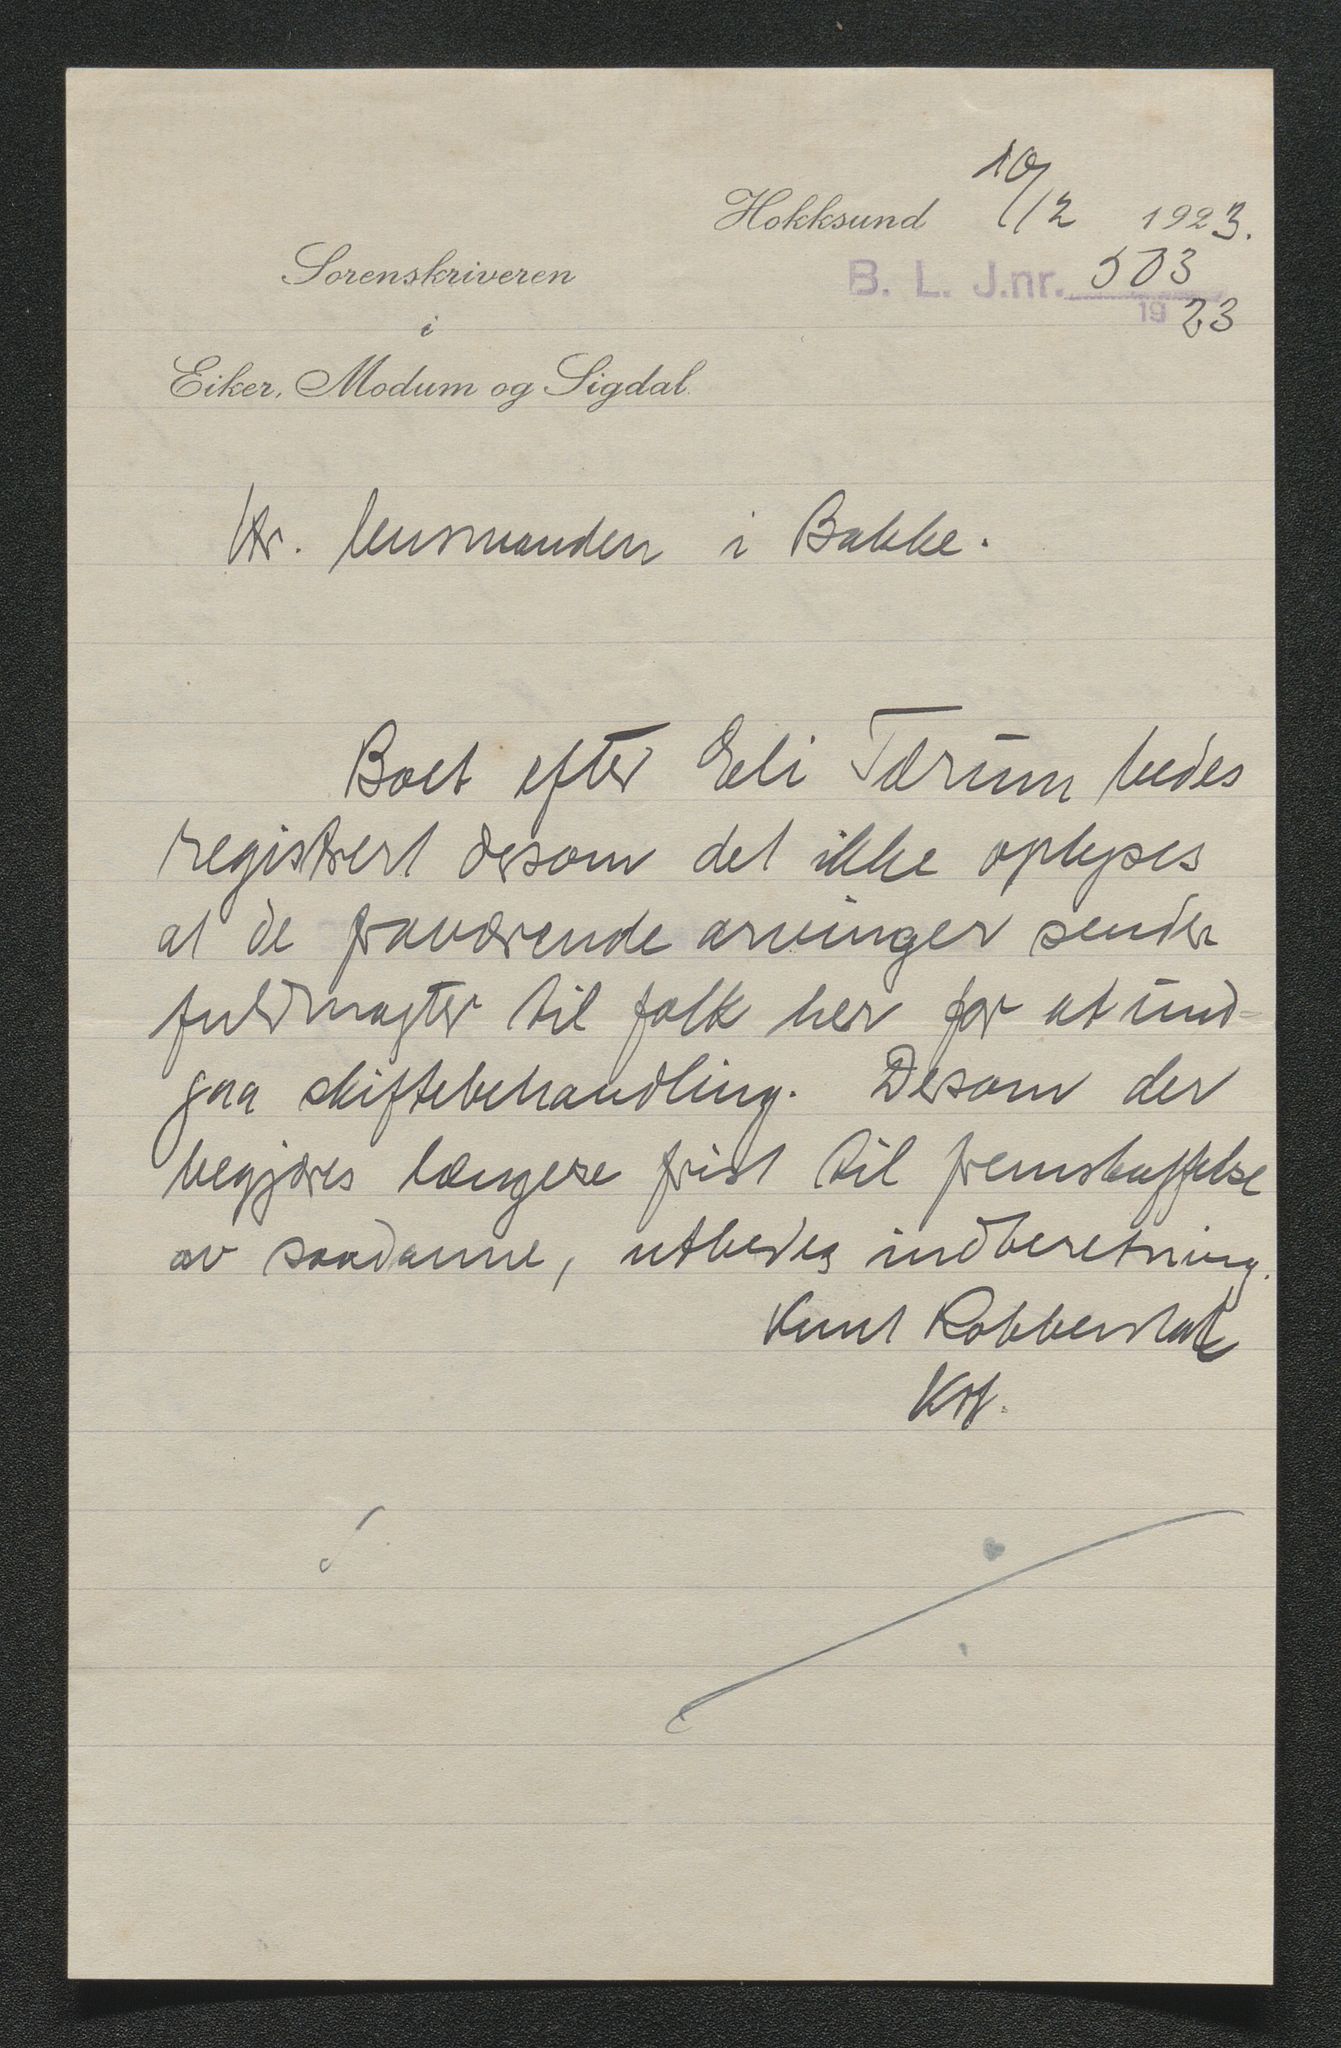 Hokksund 10/12 1923.
B. L. J.nr. 503
1923
Sorenskriveren
i
Eiker, Modum og Sigdal.
Hr. lensmanden i Bakke.
Boet efter Eli Tærum bedes
registrert dersom det ikke oplyses
at de fraværende arvinger sender
fuldmagter til folk her for at und-
gaa skiftebehandling. Dersom der
begjæres længere frist til fremskaffelse
av saadanne, utbedes indberetning.
Knut Robberstad
Kst.